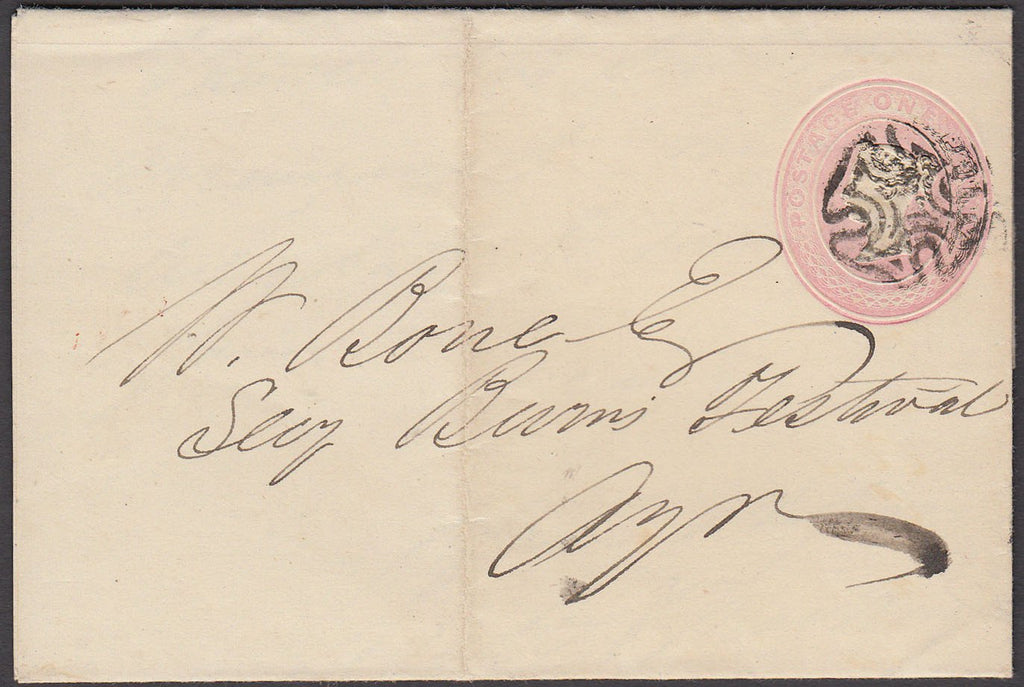 POSTAGE ONE PENNY
W. Bone Esq
Secy Burns Festival
Ayr